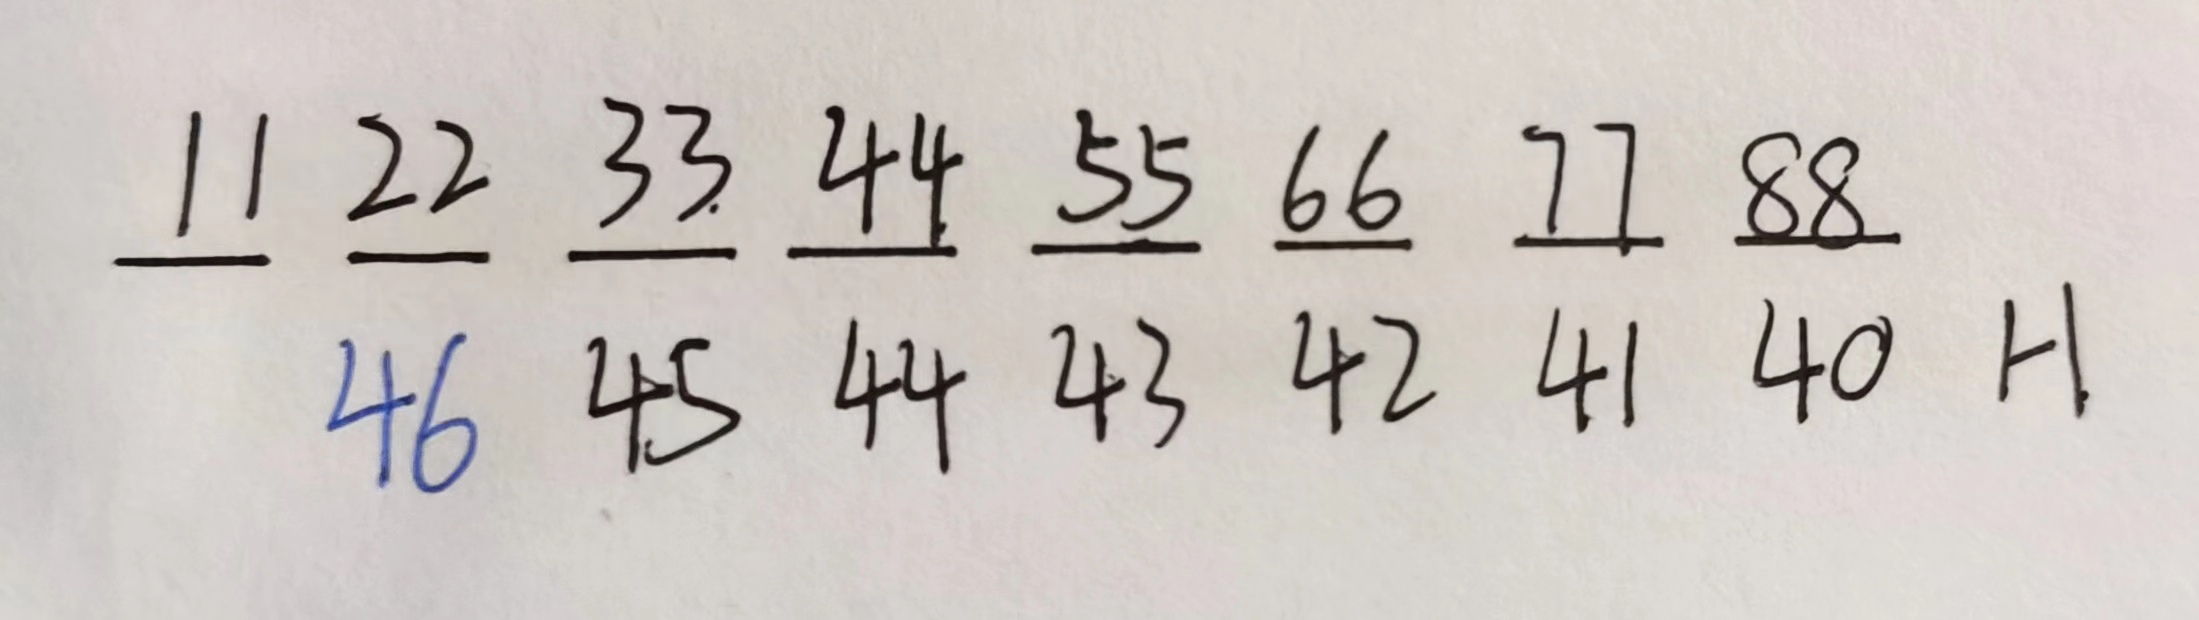 11 22 33 44 55 66 77 88
46 45 44 43 42 41 40 H